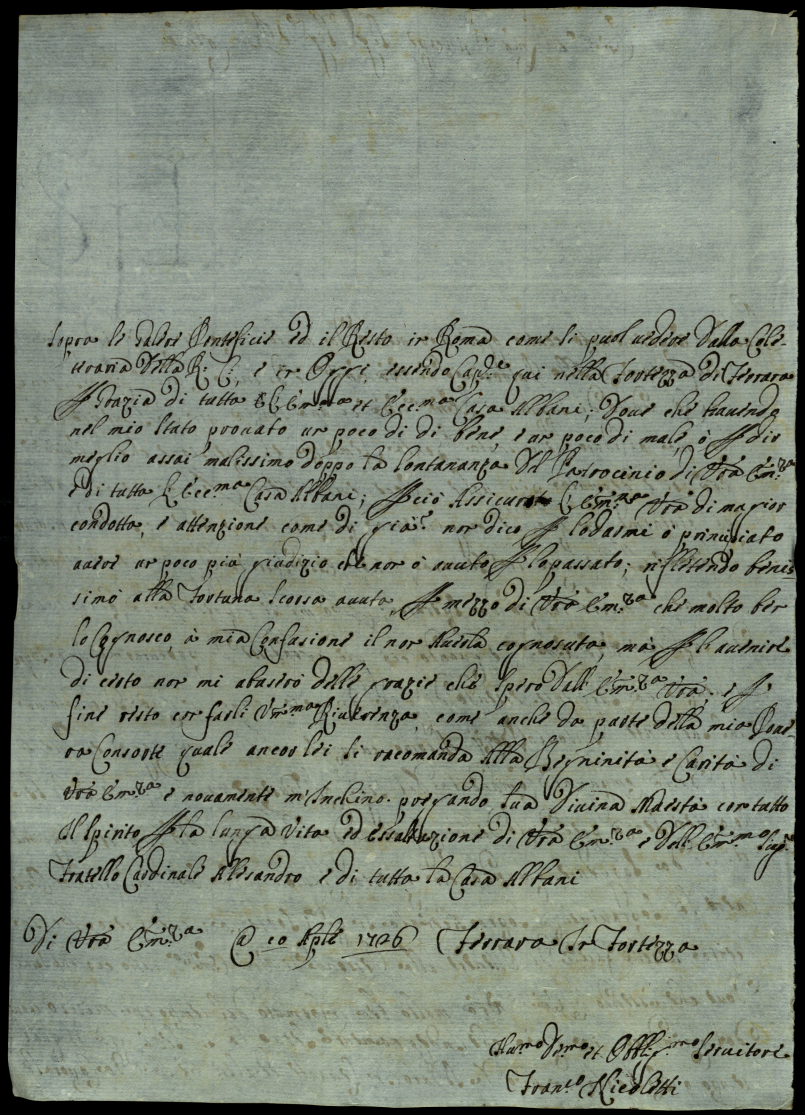 sopra le Galere Pontificie ed il Resto in Roma come si puol vedere dalla Cle-
uaria della R. C.; e in Oggi, essendo Cap.e qui nella Fortezza di Ferrara
P Grazia di tutta L'Em.ma et Ecc.ma Casa Albani; Doue che hauendo
nel mio stato prouato un poco di di bene, e un poco di male, o P dir
meglio assai malissimo doppo la lontananza del Patrocinio di Vra Em.za
e di tutta L'Ecc.ma Casa Albani; P ciò Assicuro L'Em.za Vra di magior
condotta, e attenzione come di già non dico P lodarmi ò principiato
auere un poco più giudizio che non ò auuto P lo passato; riflettendo benis
simo alla Fortuna scorsa auuta P mezzo di Vra Em.za che molto ben
lo Cognosco, à mia Confusione il non Auerla cognosuta, mà P l'auenire
di certo non mi abuserò delle grazie che spero dall'Em.za Vra, e P
fine resto con farli Um.ma Riuerenza, come anche da parte della mia Poue-
ra Consorte quale ancor lei si racomanda alla Begninità e Carità di
Vra Em.za e nouamente m'Inchino pregando sua Diuina Maestà con tutto
il Spirito P la lunga Vita ed Essaltazione di Vra Em.za e dell'Em.mo Sig.e
Fratello Cardinale Alesandro e di tutta la Casa Albani
Di Vra Em.za @ 10 Aple 1726 Ferrara In Fortezza
Hu.mo De.mo et Obblig.mo Seruitore
Fran.co Nicoletti